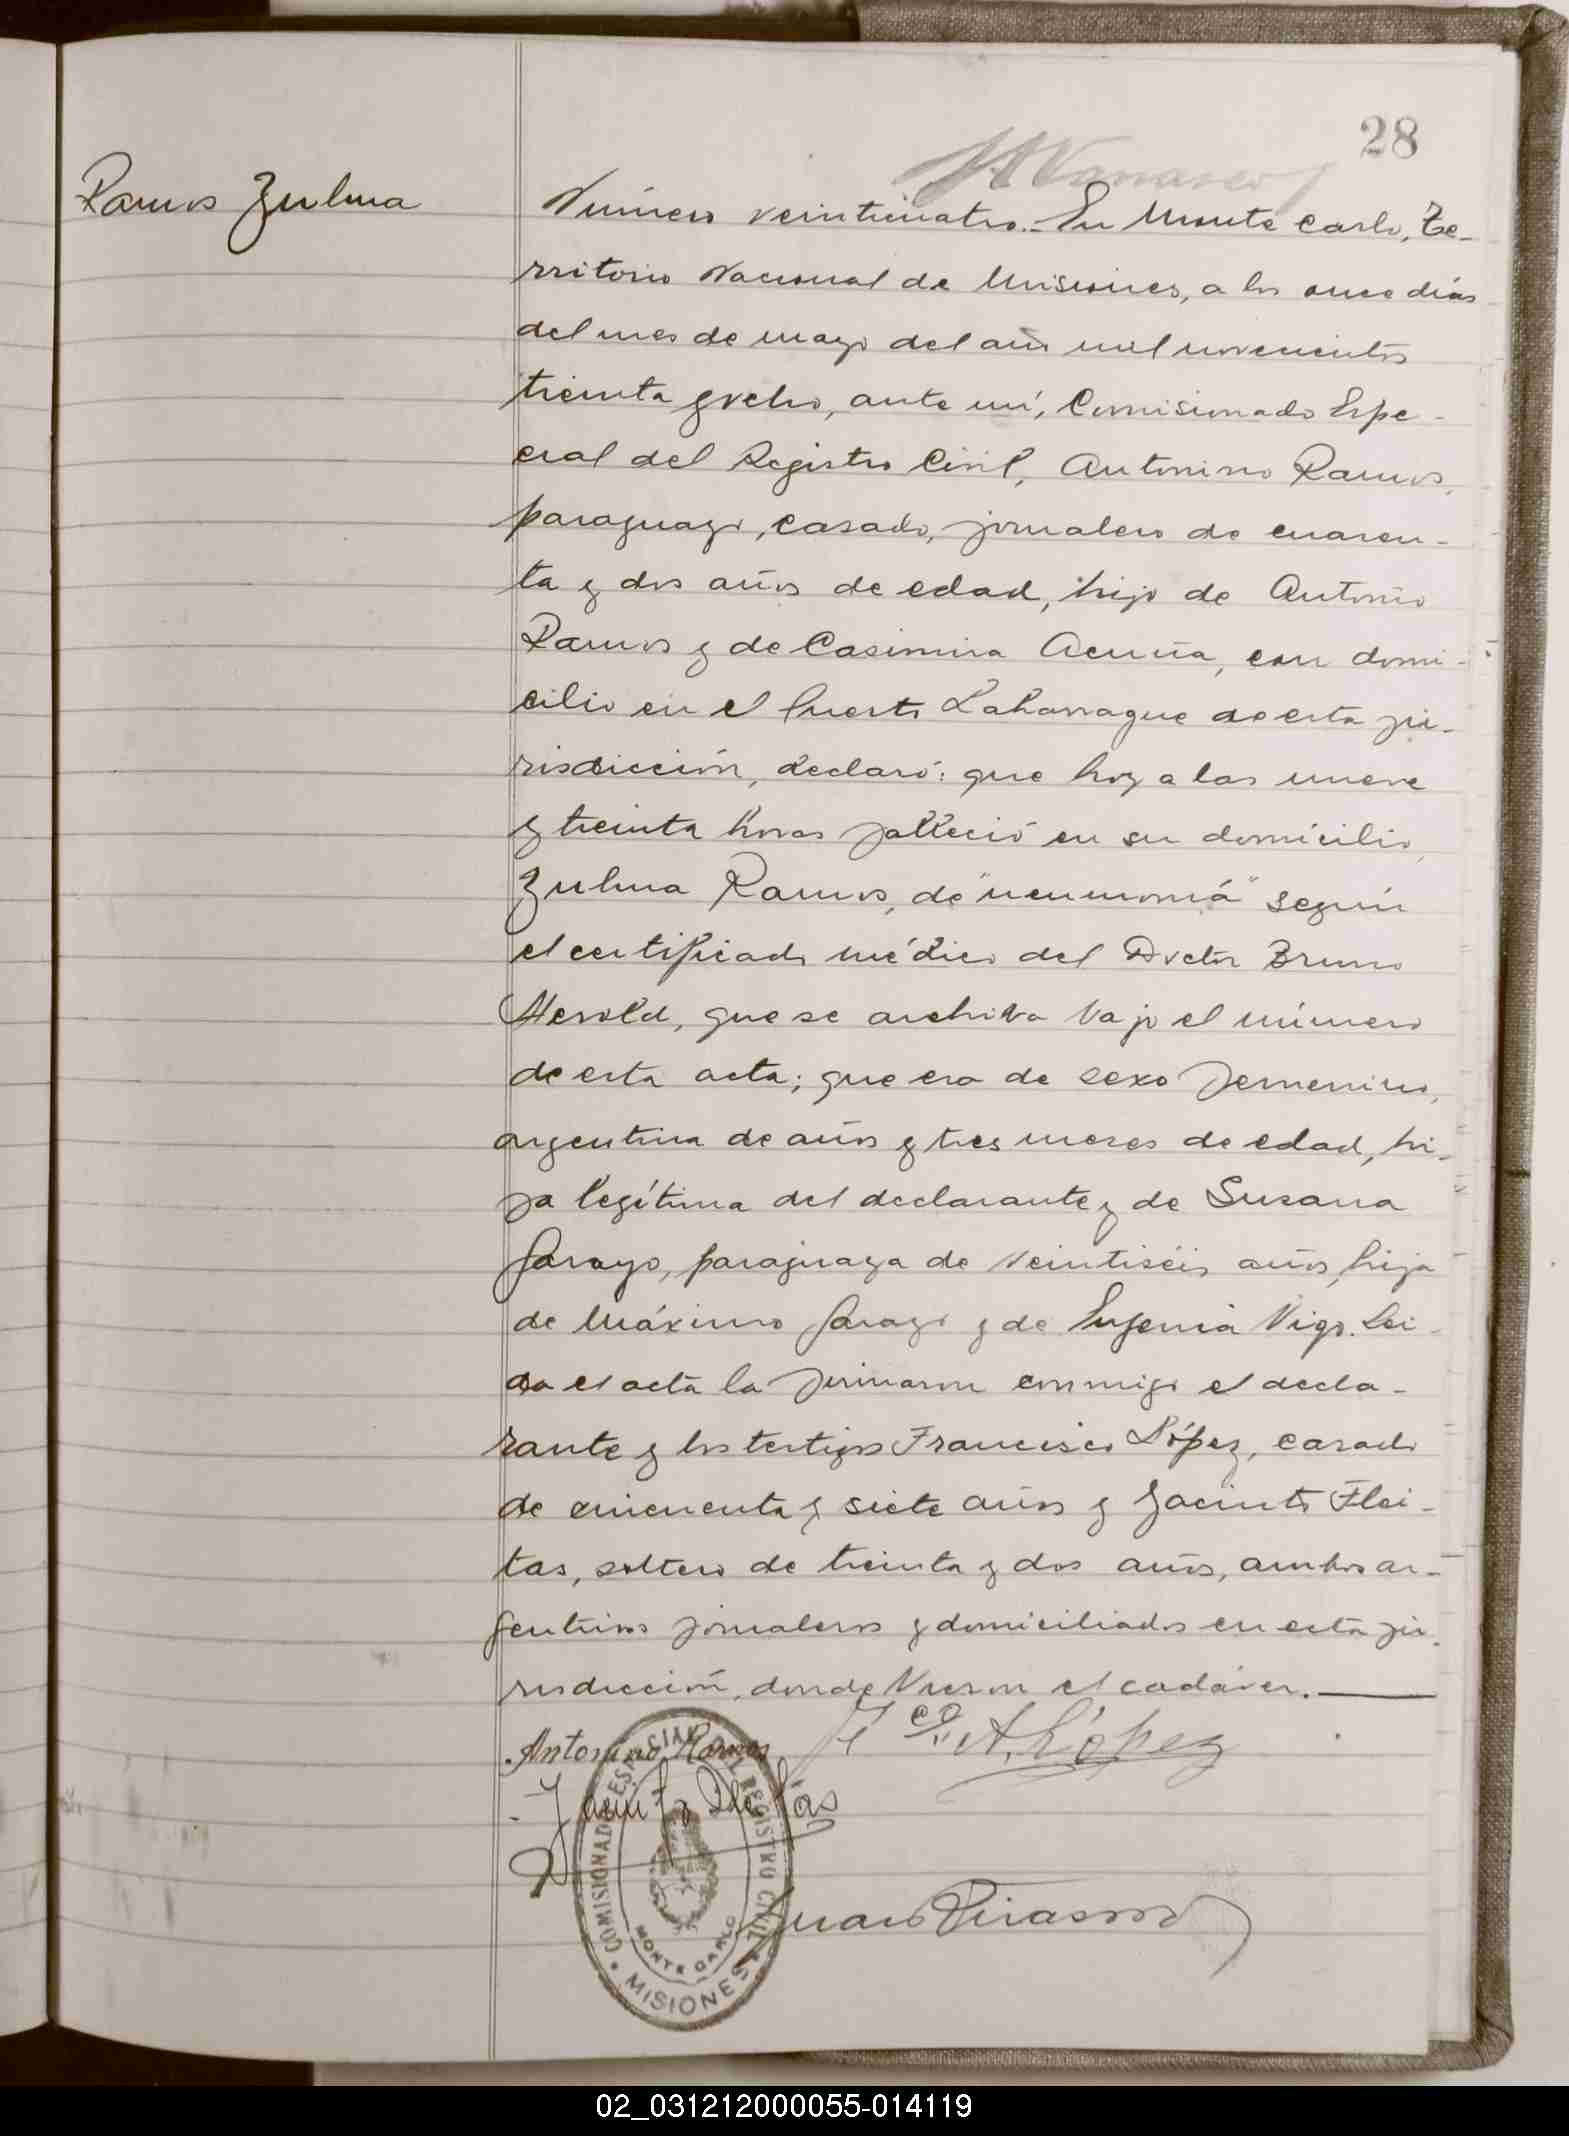 28
Ramos Zulma
Número veinticuatro.- En Monte Carlo, Te-
rritorio Nacional de Misiones, a los once días
del mes de mayo del año mil novecientos
treinta y ocho, ante mí, Comisionado Espe-
cial del Registro Civil, Antonino Ramos,
paraguayo, casado, jornalero de cuaren-
ta y dos años de edad, hijo de Antonio
Ramos y de Casimira Acuña, con domi-
cilio en el Puerto Laharrague de esta ju-
risdicción, declaró: que hoy a las nueve
y treinta horas falleció en su domicilio,
Zulma Ramos, de "neumonía" según
el certificado médico del Doctor Bruno
Herold, que se archiva bajo el número
de esta acta; que era de sexo femenino,
argentina de años y tres meses de edad, hi-
ja legítima del declarante y de Susana
Garayo, paraguaya de veintiséis años, hija
de Máximo Garayo y de Eugenia Vigo. Lei-
da el acta la firmaron conmigo el decla-
rante y los testigos Francisco López, casado
de cincuenta y siete años y Jacinto Flei-
tas, soltero de treinta y dos años, ambos ar-
gentinos jornaleros y domiciliados en esta ju-
risdicción, donde vieron el cadáver.
Antonino Ramos
A. López
COMISIONADO ESPECIAL DEL REGISTRO CIVIL
MONTE CARLO
• MISIONES •
02_031212000055-014119